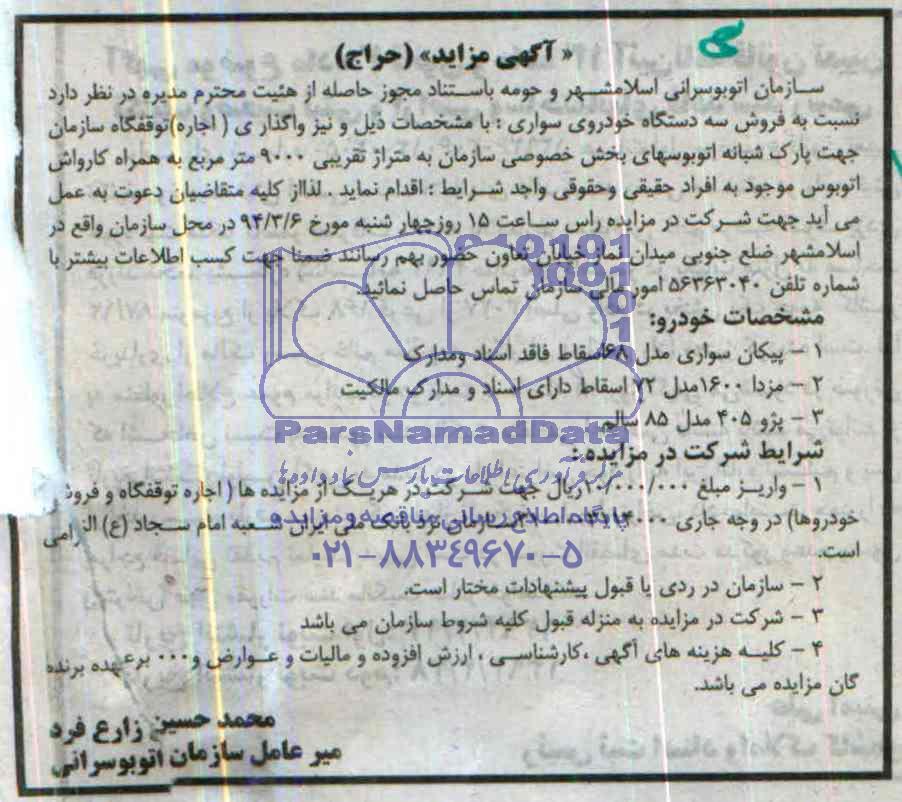 « آگهی مزاید» (حراج)
سازمان اتوبوسرانی اسلامشهر و حومه باستناد مجوز حاصله از هئیت محترم مدیره در نظر دارد
نسبت به فروش سه دستگاه خودروی سواری : با مشخصات ذیل و نیز واگذار ی ( اجاره)توقفگاه سازمان
جهت پارک شبانه اتوبوسهای بخش خصوصی سازمان به متراژ تقریبی ۹۰۰۰ متر مربع به همراه کارواش
اتوبوس موجود به افراد حقیقی وحقوقی واجد شرایط : اقدام نماید . لذااز کلیه متقاضیان دعوت به عمل
می آید جهت شرکت در مزایده راس ساعت ۱۵ روزچهار شنبه مورخ ۹۴/۳/۶ در محل سازمان واقع در
اسلامشهر ضلع جنوبی میدان نماز خیابان تعاون حضور بهم رسانند ضمنا جهت کسب اطلاعات بیشتر با
شماره تلفن ۵۶۳۶۳۰۴۰ امور مالی سازمان تماس حاصل نمائید.
مشخصات خودرو:
۱ – پیکان سواری مدل ۶۸اسقاط فاقد اسناد ومدارک
۲ – مزدا ۱۶۰۰مدل ۷۲ اسقاط دارای اسناد و مدارک مالکیت
۳ – پژو ۴۰۵ مدل ۸۵ سالم
ParsNamadData
شرایط شرکت در مزایده :
مرکز فرآوری اطلاعات پارس نماد داده‌ها
۱ – واریز مبلغ ۱۰/۰۰۰/۰۰۰ریال جهت شرکت در هریک از مزایده ها ( اجاره توقفگاه و فروش
پایگاه اطلاع رسانی مناقصه و مزایده
خودروها) در وجه جاری سازمان نزد بانک ملی ایران شعبه امام سجاد (ع) الزامی
است.
۰۲۱-۸۸۳۴۹۶۷۰-۵
۲ – سازمان در ردی یا قبول پیشنهادات مختار است.
۳ – شرکت در مزایده به منزله قبول کلیه شروط سازمان می باشد
۴ – کلیه هزینه های آگهی ،کارشناسی ، ارزش افزوده و مالیات و عوارض و۰۰۰ برعهده برنده
گان مزایده می باشد.
محمد حسین زارع فرد
میر عامل سازمان اتوبوسرانی